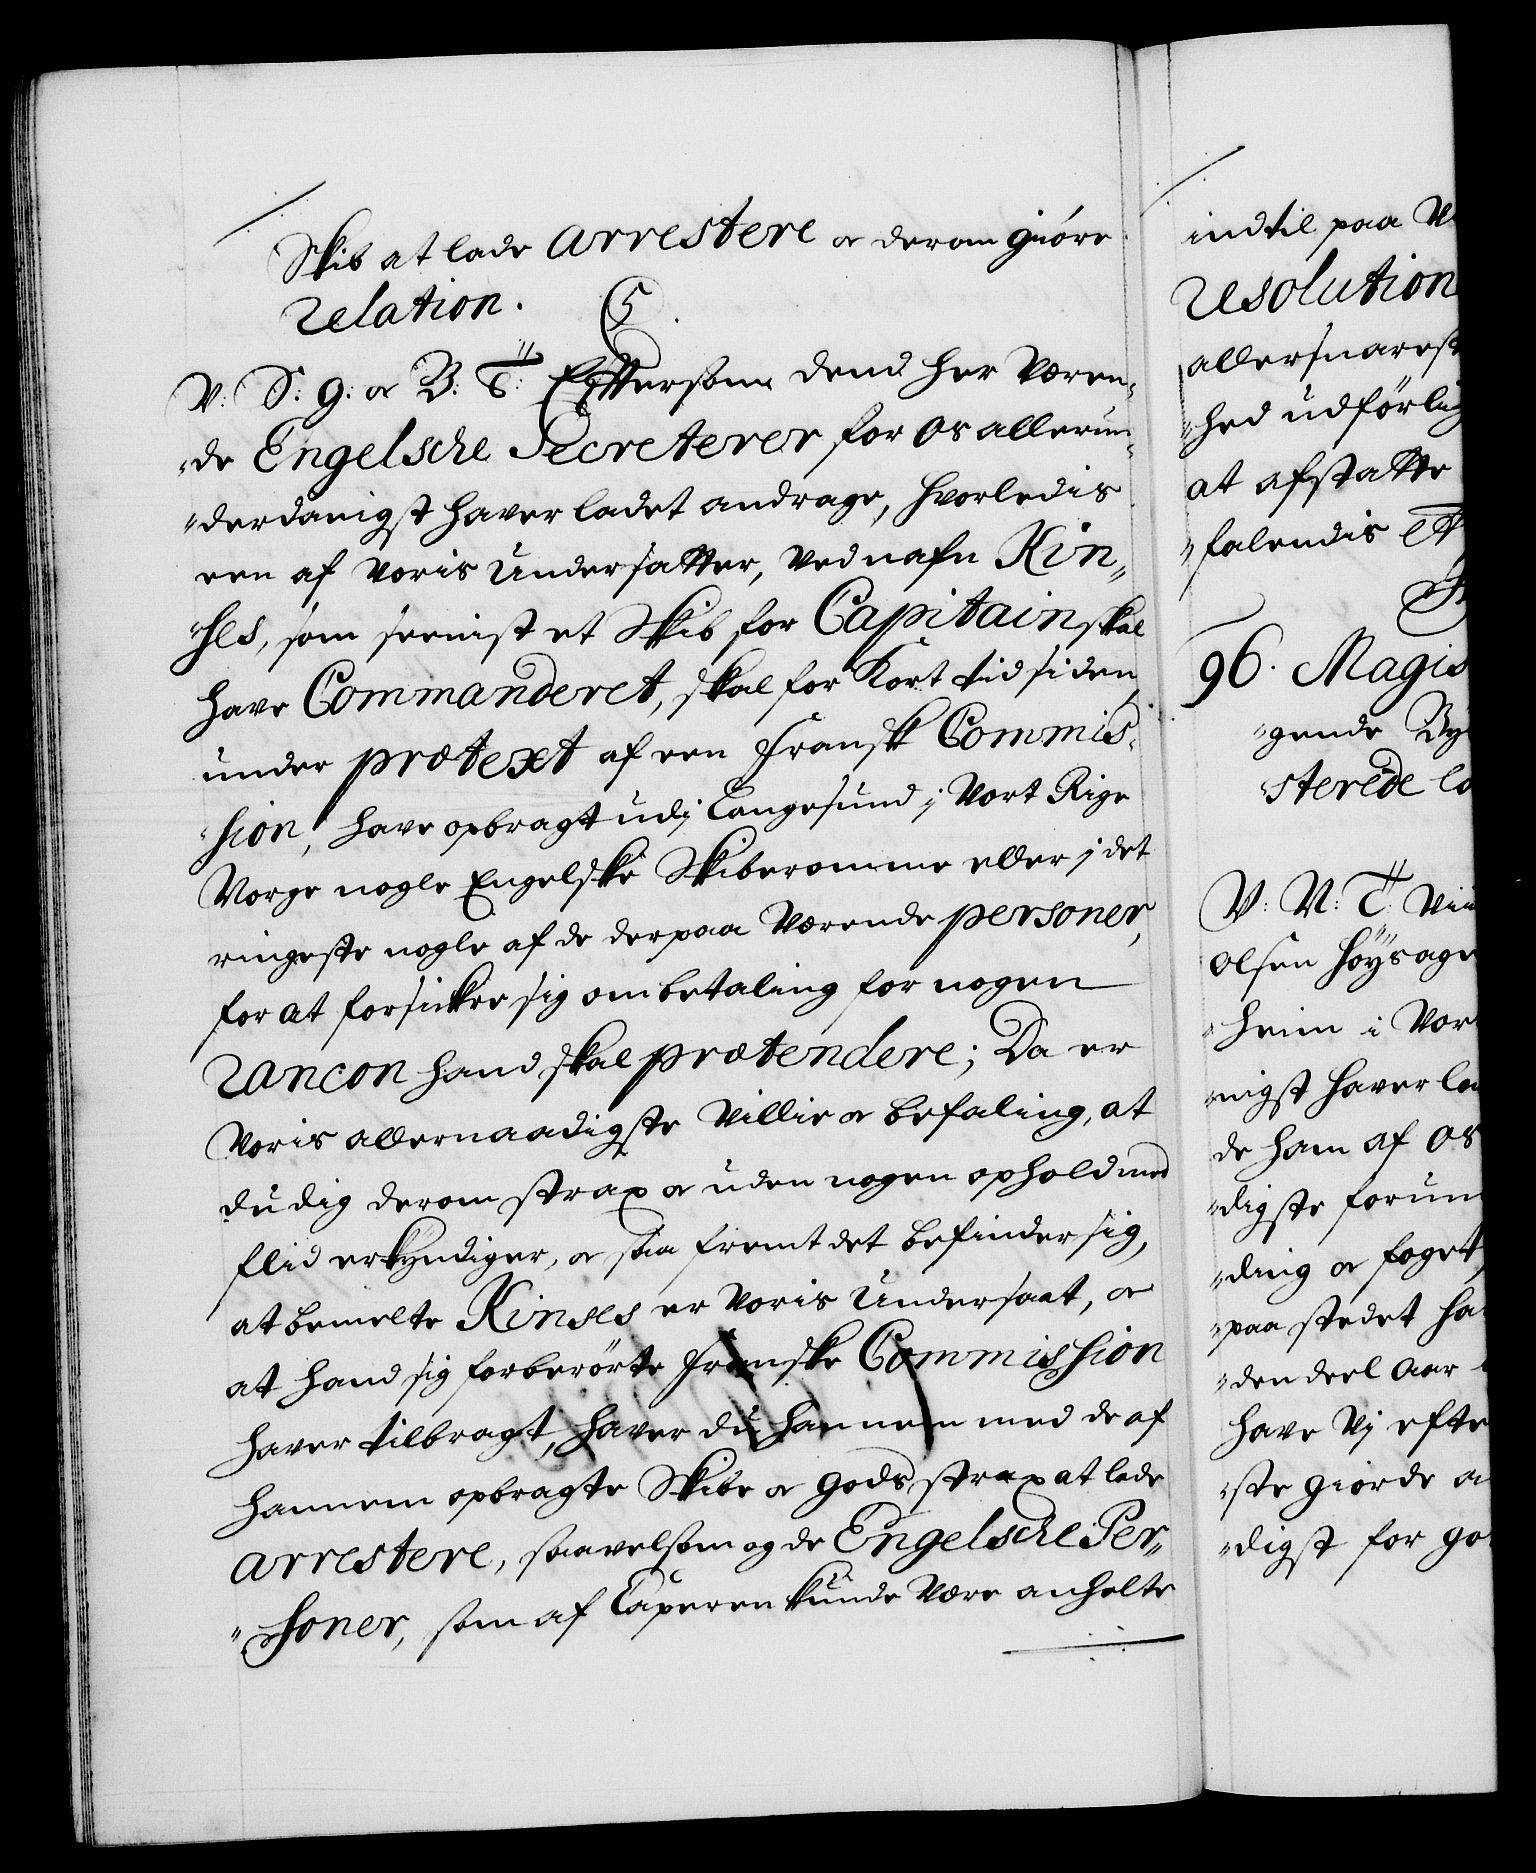 Skib at lade arrestere og derom giöre
relation.
V: S: G: og B: T: Effttersom dend her væren-
de Engelsche Secreterer for os allerun-
derdanigst haver ladet andrage, hvorledis
een af voris undersatter, ved nafn Kin-
hes, som seenist et Skib for Capitain skal
have Commanderet, skal for kort tid siden,
under prætext af een Fransk Commis-
sion, have opbragt udj Langesund j vort Rige
Norge nogle Engelske Skiberomme eller j det
ringeste nogle af de derpaa værende personer,
for at forsickre sig om betaling for nogen
rancon hand skal prætendere; Da er
voris allernaadigste villie og befaling, at
du dig derom strax og uden nogen ophold med
flid erkyndiger, og saa fremt det befinder sig,
at bemelte Kinses er voris undersaat, og
at hand sig forberörte Franske Commission
haver tilbragt, haver du hannem med de af
hannem opbragte Skibe og gods strax at lade
arrestere, saavelsom og de Engelsche Per-
soner, som af Caperen kunde være anholte
indtil paa V
resolution
allersnarest
hed udförlig
at afstatte
falendis
96. Magis
gende By
sterede lo
V: N: T: Vii
Olsen Höysage
heim i Vor
nigst haver la
de ham af os
digste forun
ding og foget,
paa stedet ha
den deel aar
have Vj efte
ste giorde a
digst for go